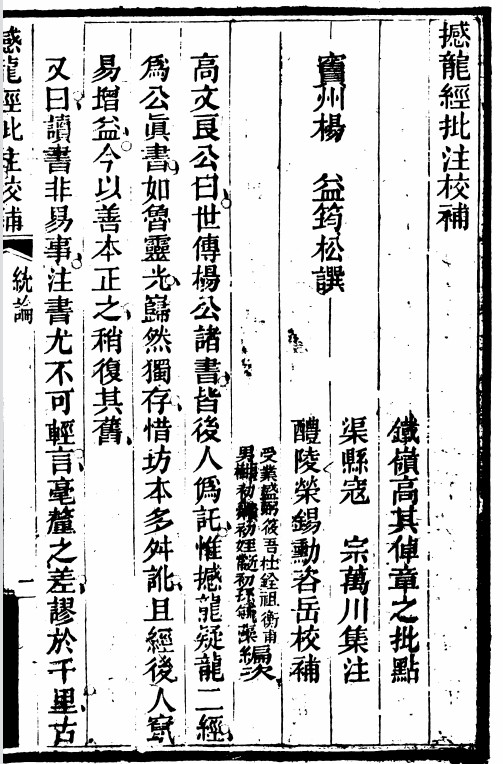 撼龍經批注校補
竇州楊　益筠松譔
鐵嶺高其倬章之批點
渠縣寇　宗萬川集注
醴陵榮錫勳咨岳校補
受業盛
男
編次
高文良公曰世傳楊公諸書皆後人僞託惟撼龍疑龍二經
爲公眞書如魯靈光巋然獨存惜坊本多舛訛且經後人竄
易增益今以善本正之稍復其舊
又曰讀書非易事注書尤不可輕言毫釐之差謬於千里古
撼龍經批注校補
統論
一